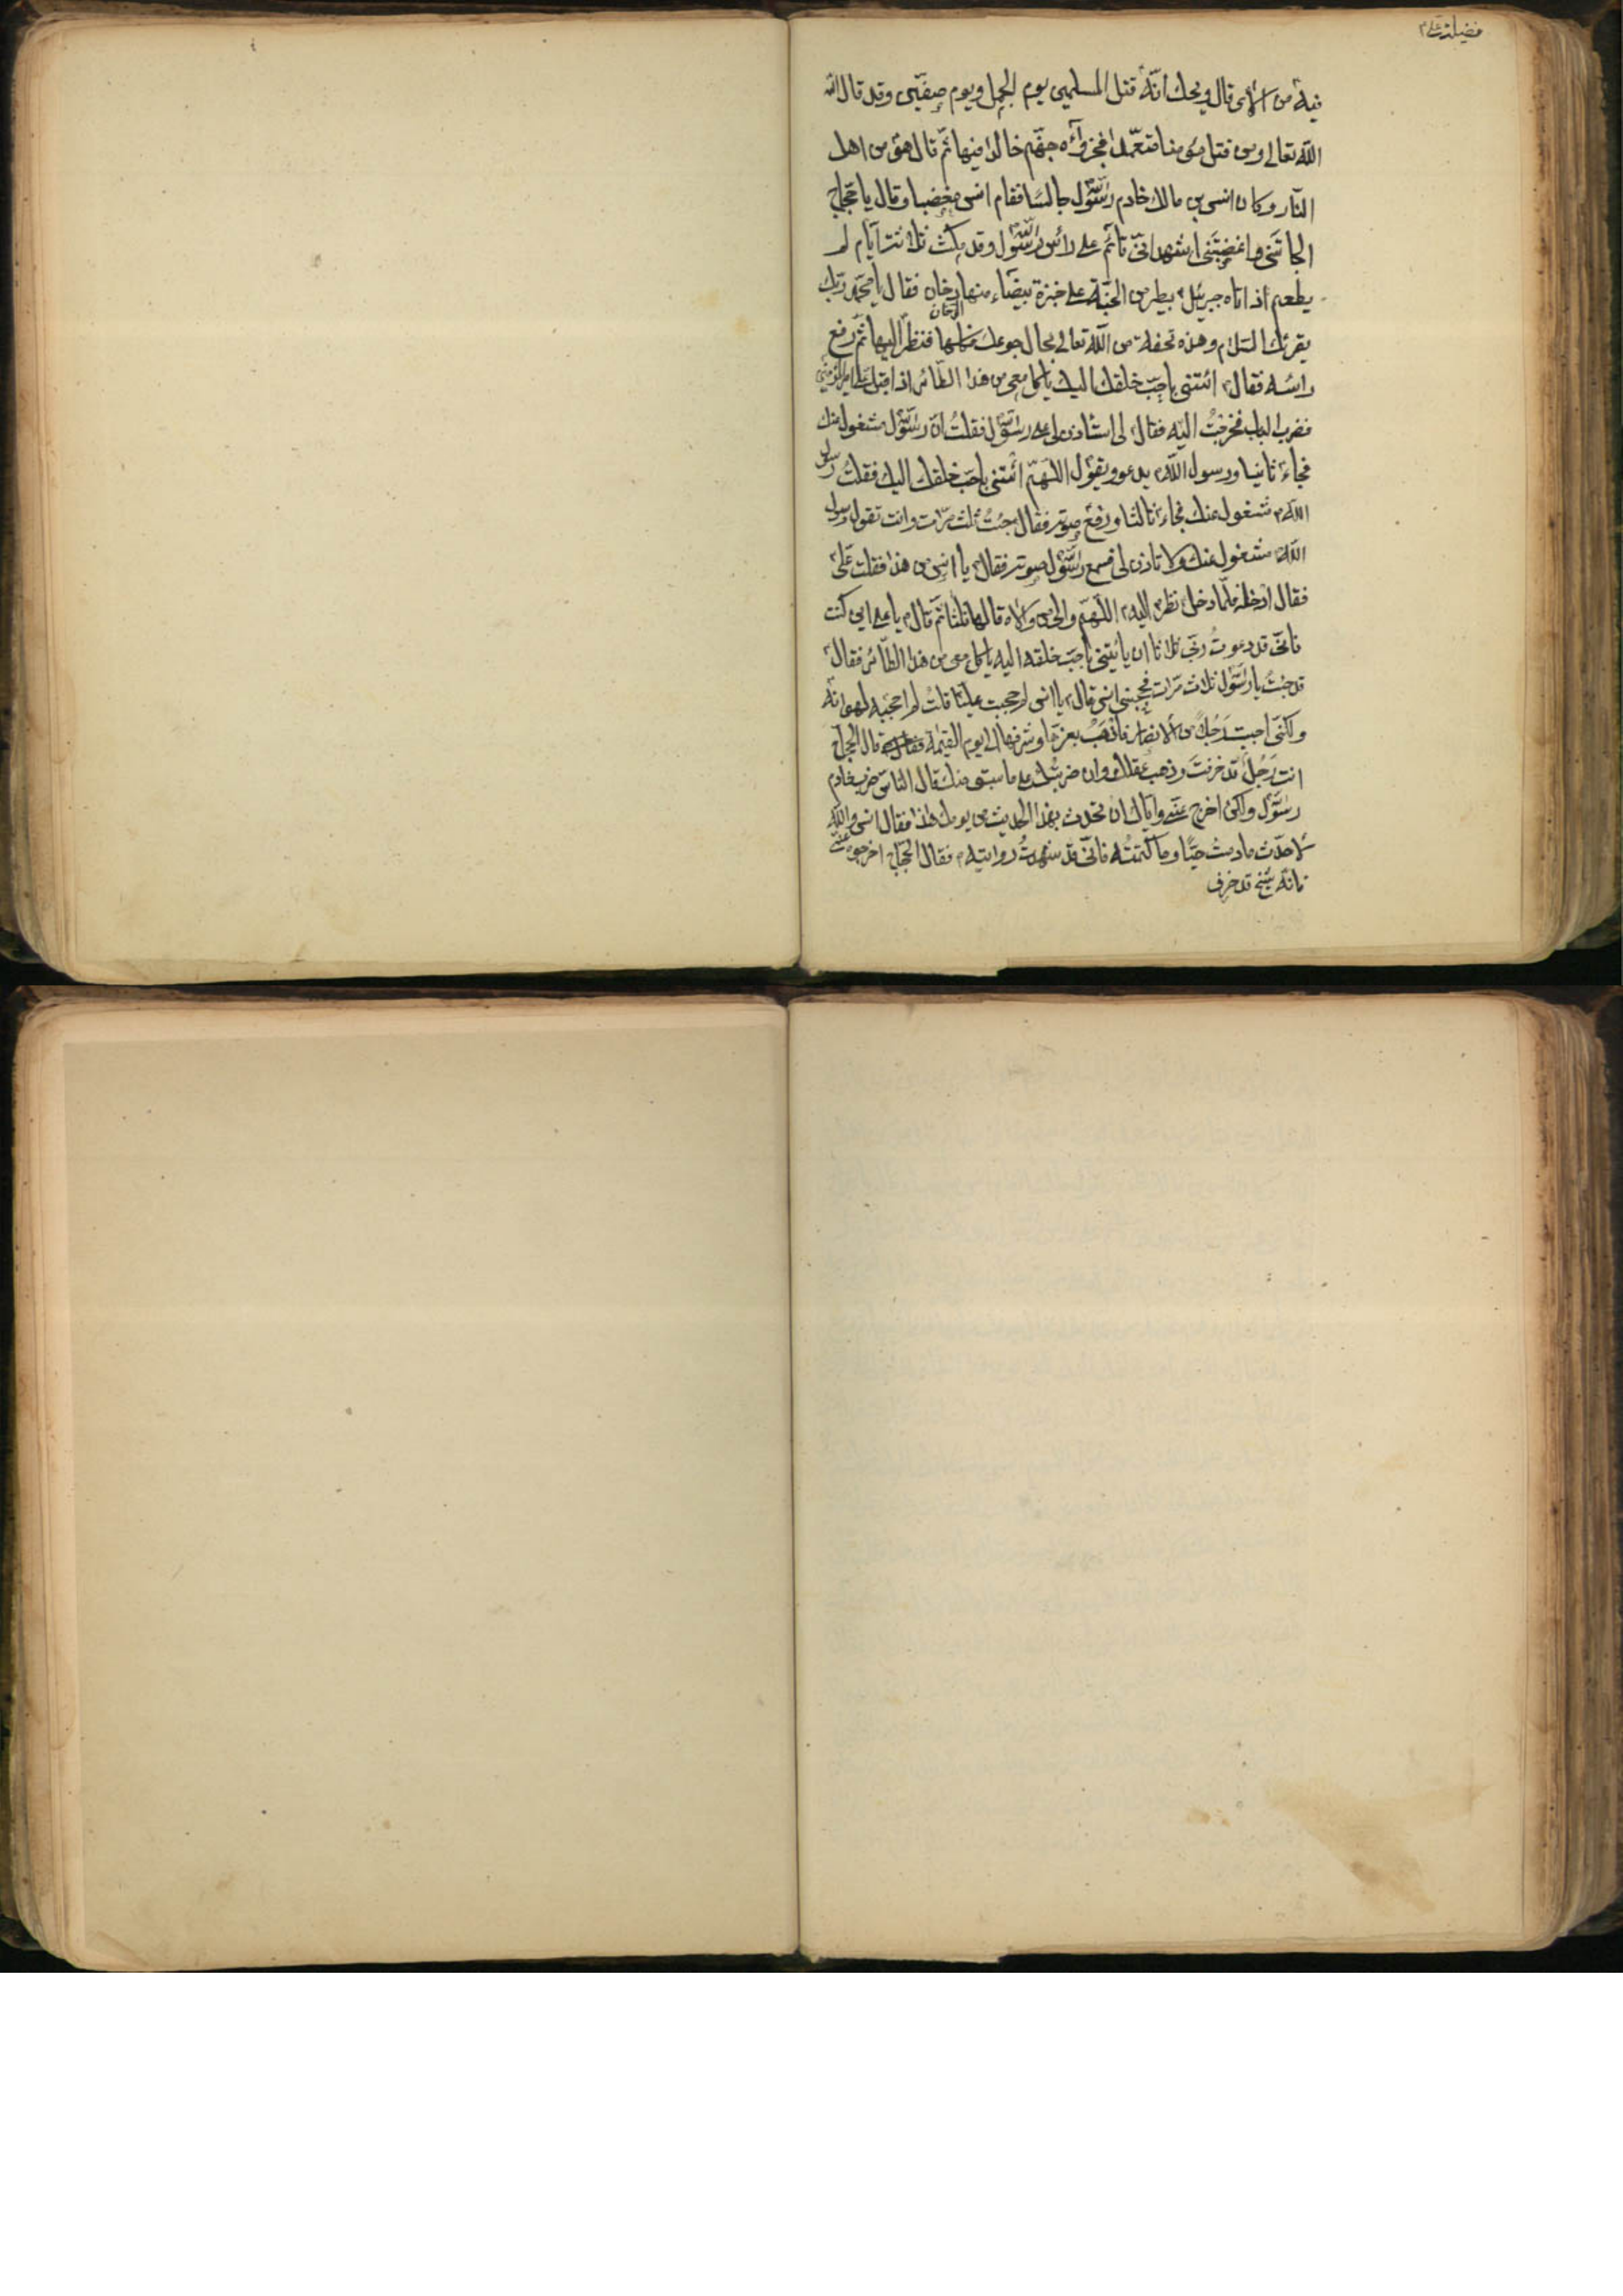 فضيلت علی ع
فيه من الاثم قال ويحك انّه قتل المسلمين يوم الجمل ويوم صفّين وقد قال الله
الله تعالى ومن قتل مؤمنا متعمّدا فجزآؤه جهنّم خالدا فيها ثمّ قال هو من اهل
النّار وكان انس بن مالك خادم رسول الله جالسا فقام انس مغضبا وقال يا حجّاج
الجأتني واغضبتني اشهد انّى قائم على رأس رسول الله وقد مكث ثلاثة ايّام لم
يطعم اذ اتاه جبرئيل ع بطير من الجنّة على خبزة بيضاء منها دخان فقال يا محمّد ربّك
الدخان
يقرئك السّلام وهذه تحفة من الله تعالى لحال جوعك فكلها فنظر اليها ثمّ رفع
رأسه فقال ائتنى باحبّ خلقك اليك ياكل معى من هذا الطّائر اذ اقبل علی امير المؤمنين
فضرب الباب فخرجتُ اليه فقال لى استأذن لى على رسول الله فقلتُ انّ رسول الله مشغول عنك
فجاء ثانيا ورسول الله يدعو ويقول اللّهمّ ائتنى باحبّ خلقك اليك فقلتُ رسول
الله مشغول عنك فجاء ثالثا ورفع صوته فقال جئتُ ثلث مرّات وانت تقول رسول
الله مشغول عنك ولا تاذن لى فسمع رسول الله صوته فقال يا انس من هذا فقلت علىّ
فقال ادخله فلمّا دخل نظر اليه اللّهمّ والى من والاه قالها ثلثا ثمّ قال يا على اين كنت
فانّى قد دعوتُ ربّى ثلاثا ان ياتينى باحبّ خلقه اليه ياكل معى من هذا الطّائر فقال
قد جئتُ يا رسول الله ثلاث مرّات فحجبنى انس قال يا انس لم حجبت عليّا قلتُ لم احجبه لهوانه
ولكنّى احببت رجلًا من الانصار فاذهب بعزها وشرفها الى يوم القيمة قال الحجّاج
انت رجلٌ قد خرفت وذهب عقلك وان ضربتُك على ما سبق منك قال النّاس ضرب خادم
رسول الله ولكن اخرج عنّى وايّاك ان تحدّث بهذا الحديث من يومك هذا فقال انس والله
لاحدّث ما دمتُ حيّا وما كتمتُه فانّى قد شهدتُ روايته فقال الحجّاج اخرجوه عنّى
فانّه شيخ قد خرف